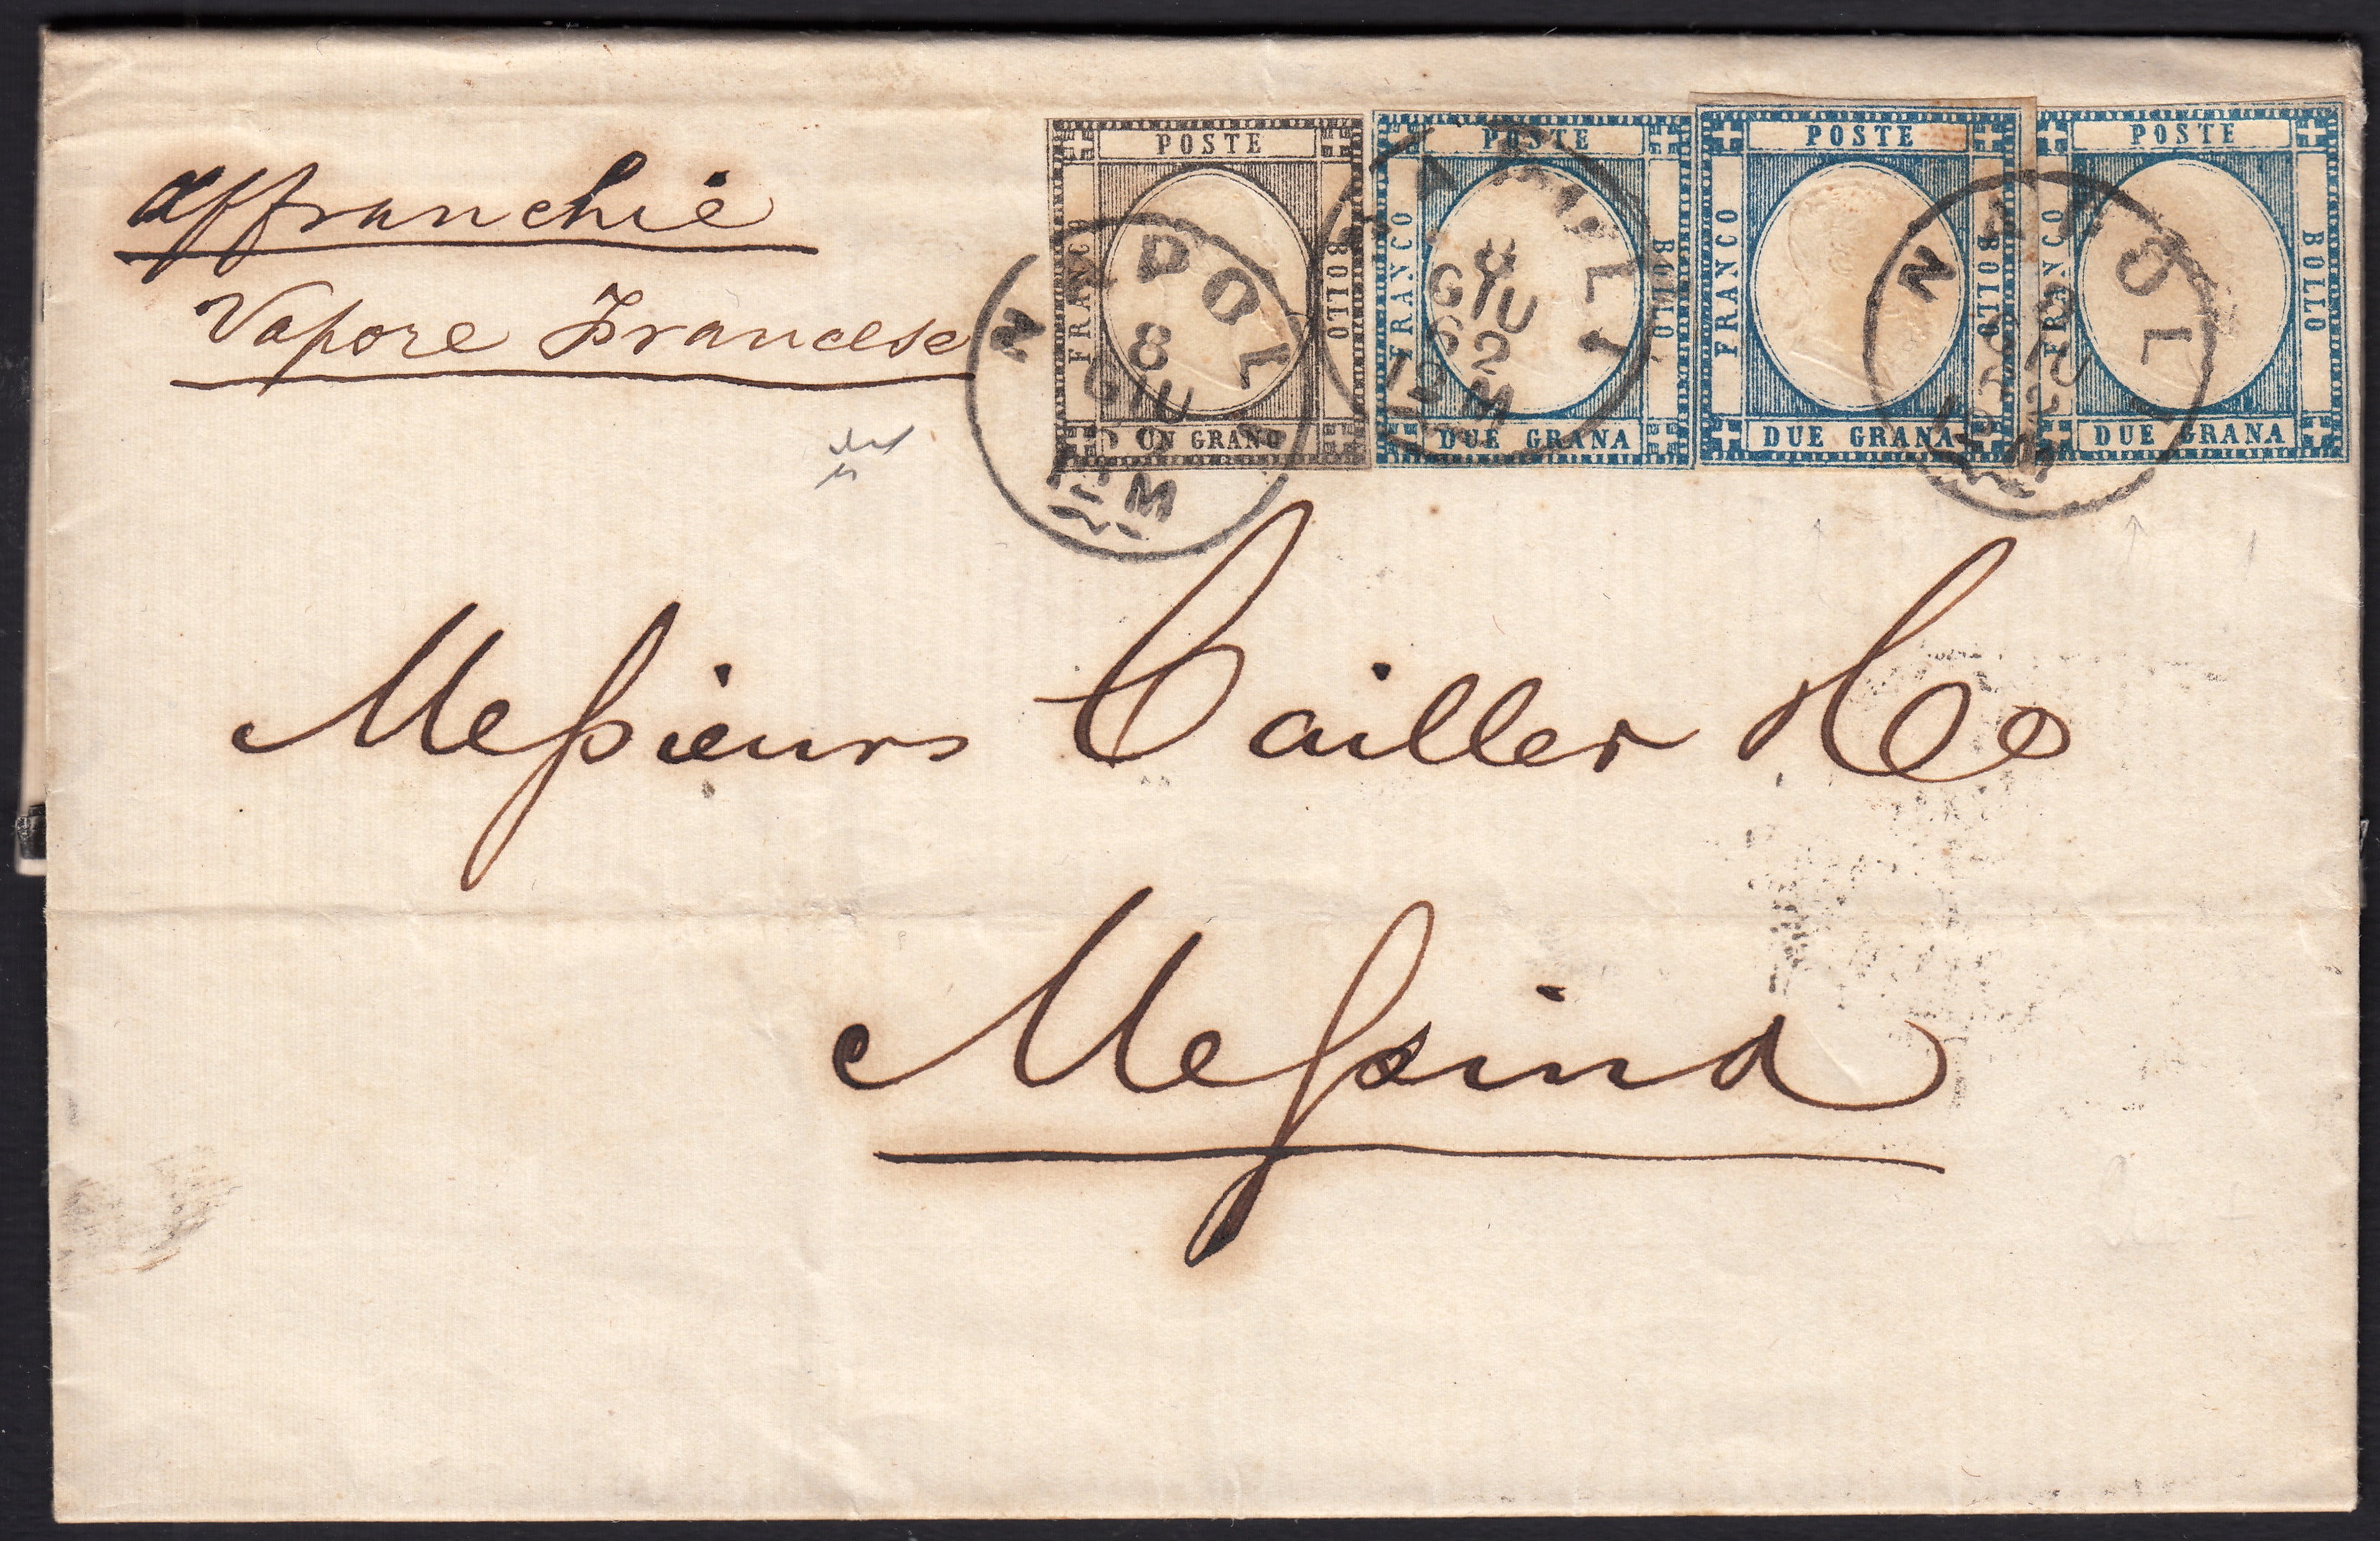 affranchie
Vapore Francese
POSTE
FRANCO
BOLLO
UN GRANO
POSTE
FRANCO
BOLLO
DUE GRANA
POSTE
FRANCO
BOLLO
DUE GRANA
POSTE
FRANCO
BOLLO
DUE GRANA
NAPOLI
8
GIU
12 M
NAPOLI
8
GIU
62
12 M
NAPOLI
Messieurs Cailler & Co
Messina